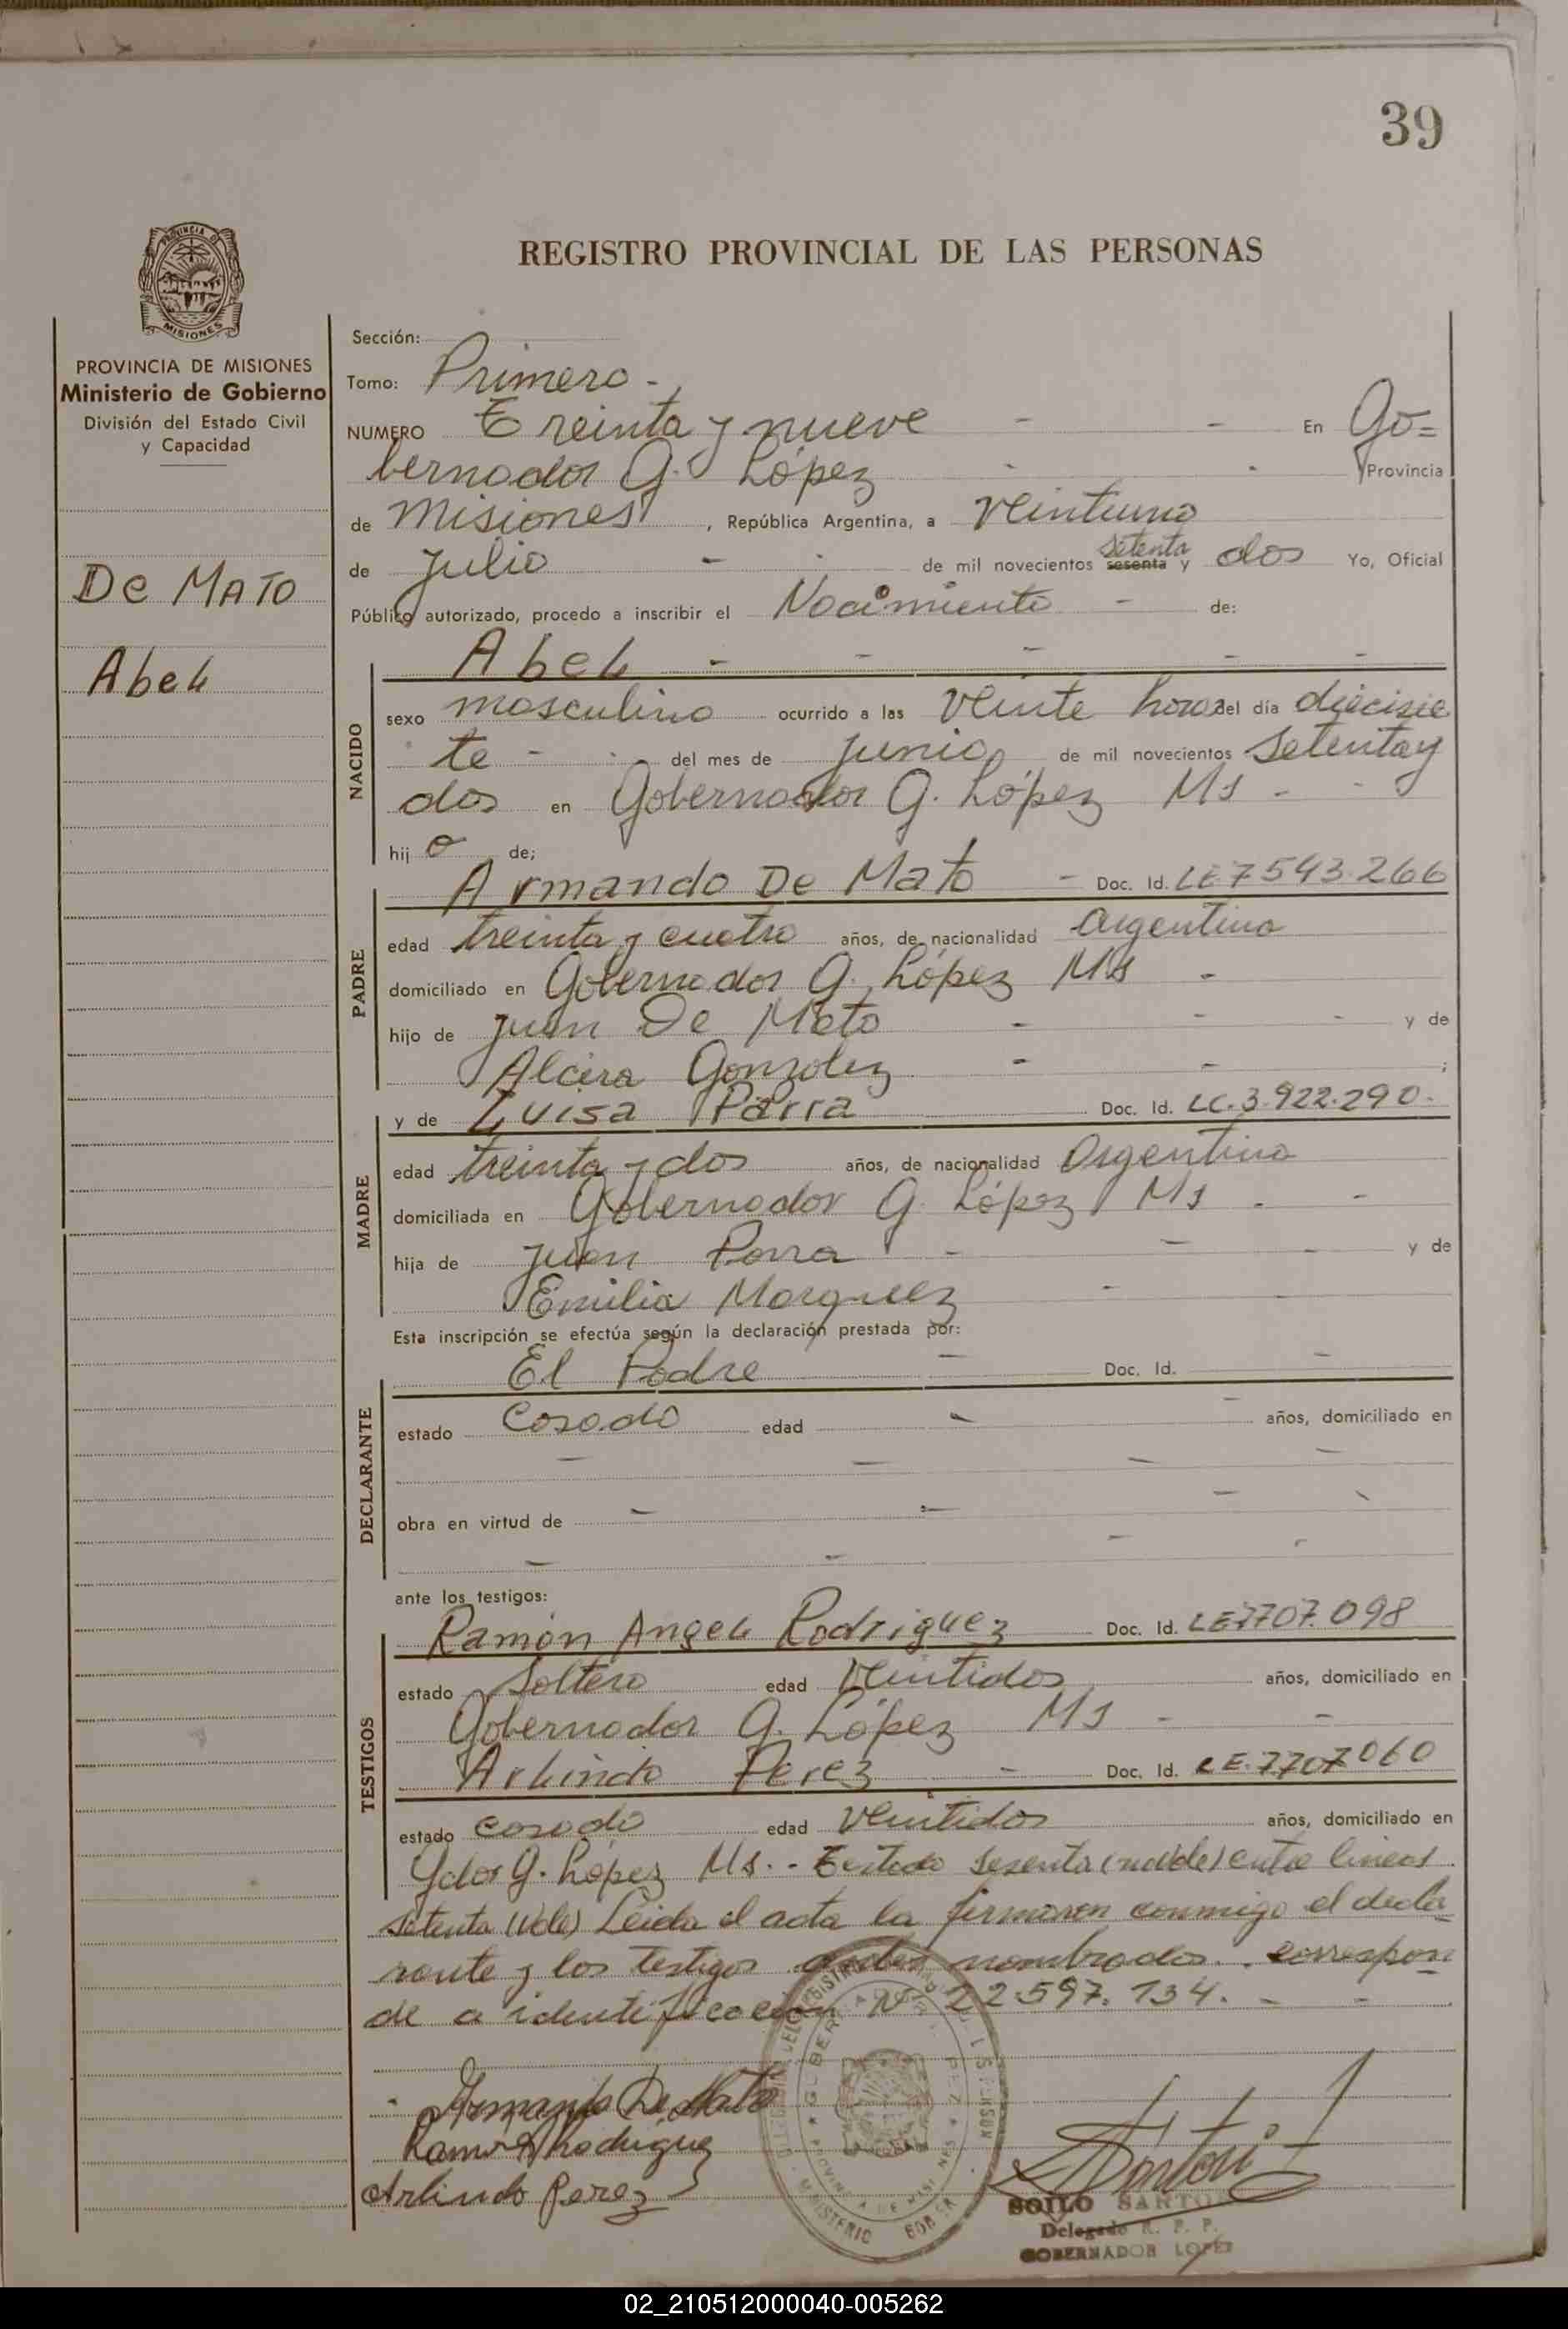 39
REGISTRO PROVINCIAL DE LAS PERSONAS
PROVINCIA DE MISIONES
Ministerio de Gobierno
División del Estado Civil
y Capacidad
De MATO
Abel
Sección:
Tomo: Primero -
NUMERO Treinta y nueve - - En Go=
bernador G. López - - Provincia
de Misiones, República Argentina, a veintiuno
de Julio - - de mil novecientos sesenta setenta y dos Yo, Oficial
Público autorizado, procedo a inscribir el Nacimiento - de:
Abel - - - - -
NACIDO
sexo masculino ocurrido a las veinte horas del día diecisie
te - - del mes de junio de mil novecientos setenta y
dos en Gobernador G. López Ms - -
hij o de;
Armando De Mato - Doc. Id. LE 7543.266
PADRE
edad treinta y cuatro años, de nacionalidad Argentina
domiciliado en Gobernador G. López Ms -
hijo de Juan De Mato - - - y de
Alcira Gonzalez - - ;
y de Luisa Parra Doc. Id. LC.3.922.290.
MADRE
edad treinta y dos años, de nacionalidad Argentina
domiciliada en Gobernador G. López Ms - -
hija de Juan Parra - - - y de
Emilia Marquez -
Esta inscripción se efectúa según la declaración prestada por:
El Padre - Doc. Id. -
DECLARANTE
estado Casado edad - - años, domiciliado en
- - - -
obra en virtud de - - - -
- - - -
ante los testigos:
Ramón Angel Rodriguez Doc. Id. LE7707.098
TESTIGOS
estado Soltero edad veintidos años, domiciliado en
Gobernador G. López Ms - -
Arlindo Perez - Doc. Id. LE.7707060
estado casado edad veintidos años, domiciliado en
Gdor G. López Ms. - Testado sesenta (no vale) entre lineas
setenta (Vale) Leida el acta la firmaron conmigo el decla
rante y los testigos antes nombrados. correspon
de a identificación Nº 22.597.134. - -
Armando De Mato
Ramon A Rodriguez
Arlindo Perez
SOILO SANTO
Delegado R. P. P.
GOBERNADOR LOPEZ
02_210512000040-005262